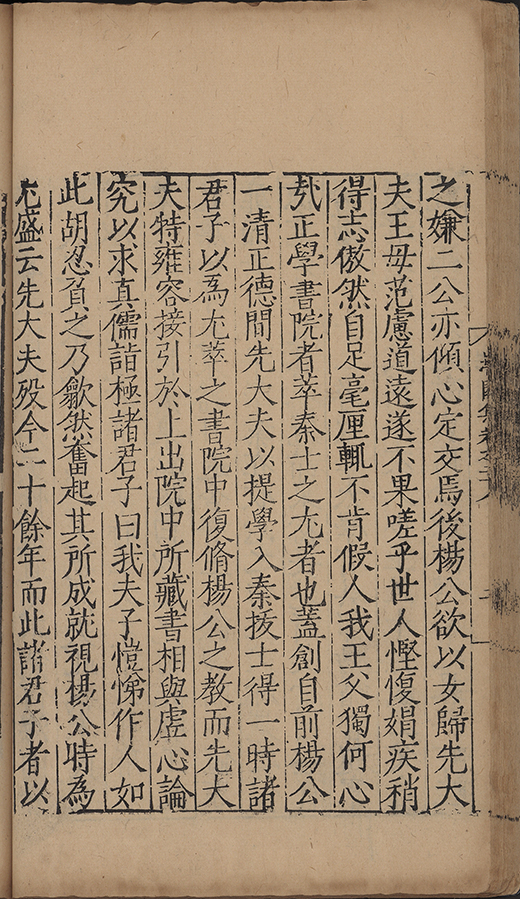 之嫌二公亦傾心定交焉後楊公欲以女歸先大
夫王母范慮道遠遂不果嗟乎世人慳愎娟疾稍
得志傲然自足毫厘輒不肯假人我王父獨何心
㢤正學書院者萃秦士之尤者也蓋創自前楊公
一清正德間先大夫以提學入秦拔士得一時諸
君子以為尤萃之書院中復脩楊公之教而先大
夫特雍容接引於上出院中所藏書相與虛心論
究以求真儒詣極諸君子曰我夫子愷悌作人如
此胡忍負之乃歉然奮起其所成就視楊公時為
尤盛云先大夫歿今二十餘年而此諸君子者以